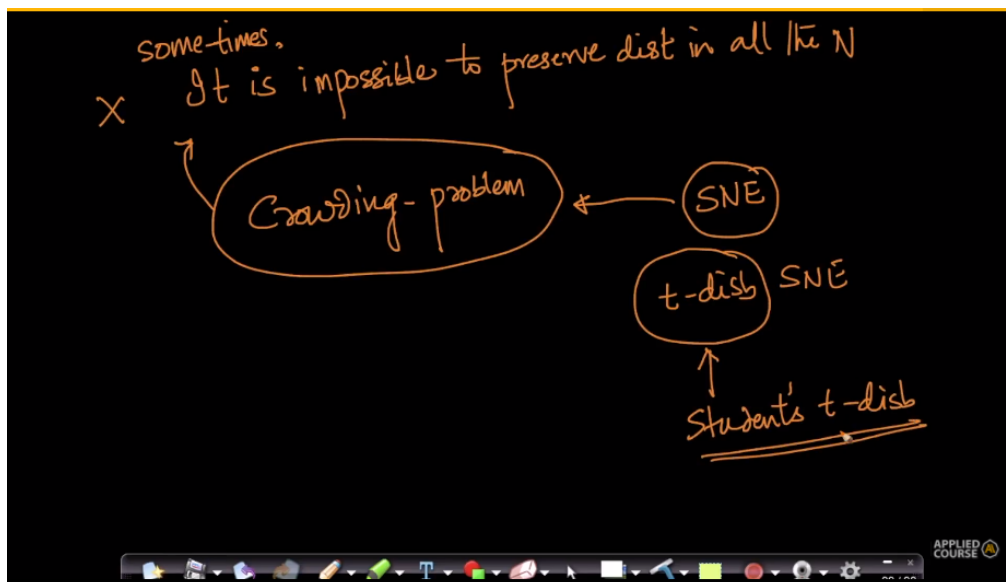 some-times.
It is impossible to preserve dist in all the N
X
Crowding-problem
SNE
t-disb SNE
Student's t-disb
APPLIED
COURSE
T